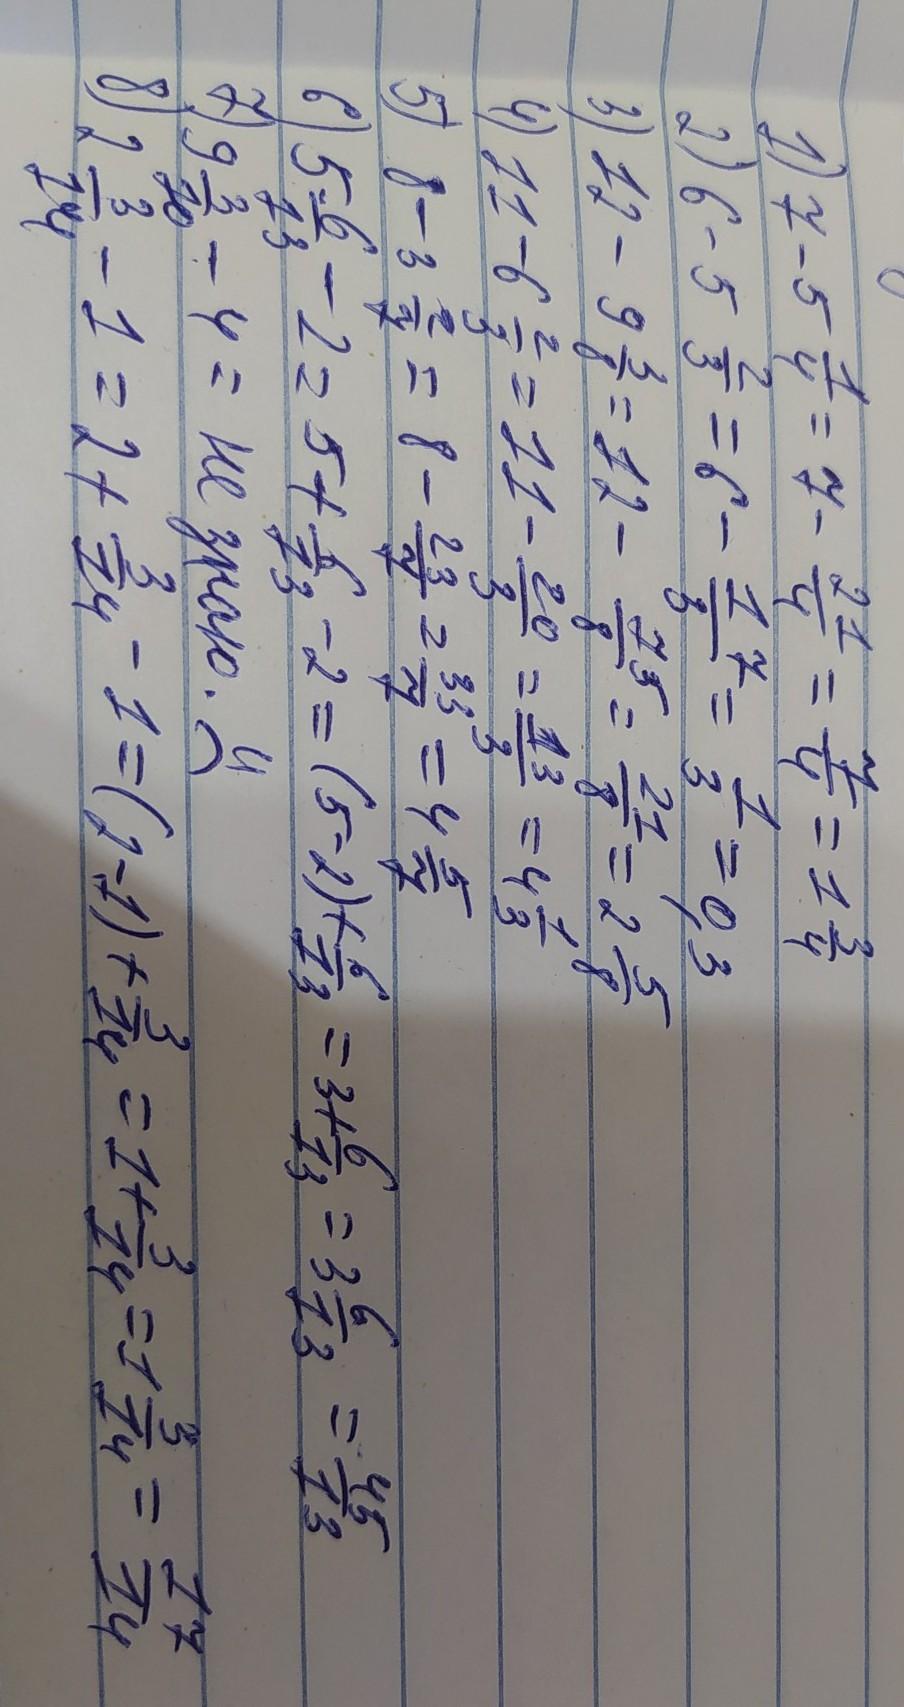 1) 7 - 5 1/4 = 7 - 21/4 = 7/4 = 1 3/4
2) 6 - 5 2/3 = 6 - 17/3 = 1/3 = 0,3
3) 12 - 9 3/8 = 12 - 75/8 = 21/8 = 2 5/8
4) 11 - 6 2/3 = 11 - 20/3 = 13/3 = 4 1/3
5) 8 - 3 2/7 = 8 - 23/7 = 33/7 = 4 5/7
6) 5 6/13 - 2 = 5 + 6/13 - 2 = (5-2) + 6/13 = 3 + 6/13 = 3 6/13 = 45/13
7) 9 3/10 - 4 = не знаю.
8) 2 3/14 - 1 = 2 + 3/14 - 1 = (2-1) + 3/14 = 1 + 3/14 = 1 3/14 = 17/14